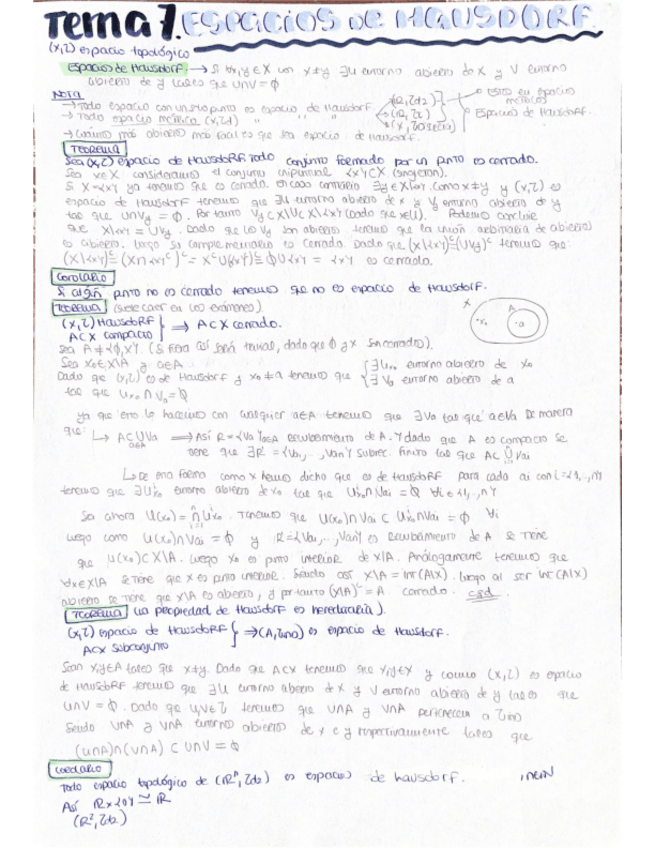 Tema 7. ESPACIOS DE HAUSDORF.
(X,τ) espacio topológico
Espacios de Hausdorf. → Si ∀x,y∈X con x≠y ∃U entorno abierto de x y V entorno
abierto de y tales que U∩V=∅
Nota
→ Todo espacio con un sólo punto es espacio de Hausdorf.
→ Todo espacio métrico (X,τd) " " " "
→ Cuántos más abiertos más fácil es que sea espacio de Hausdorf.
Espacios de Hausdorf.
TEOREMA
Sea (X,τ) espacio de HausdoRF. Todo conjunto formado por un punto es cerrado.
Sea x∈X consideramos el conjunto unipuntual {x}⊂X (singleton).
Si X={x} ya tenemos que es cerrado. En caso contrario ∃y∈X\{x}. Como x≠y y (X,τ) es
espacio de HausdoRF tenemos que ∃U entorno abierto de x y Vy entorno abierto de y
tal que U∩Vy=∅. Por tanto Vy⊂X\U⊂X\{x} (Dado que x∈U). Podemos concluir
que X\{x}=∪Vy. Dado que los Vy son abiertos tenemos que la unión arbitraria de abiertos
es abierto. Luego su complementario es cerrado. Dado que (X\{x})ᶜ=(∪Vy)ᶜ tenemos que:
(X\{x})ᶜ=(X∩{x}ᶜ)ᶜ=Xᶜ∪({x}ᶜ)ᶜ=∅∪{x}={x} es cerrado.
COROLARIO
Si algún punto no es cerrado tenemos que no es espacio de Hausdorf.
TEOREMA (suele caer en los exámenes).
(X,τ) HausdoRF
A⊂X compacto } ⟹ A⊂X cerrado.
X A ·x₀ ·a
Sea A≠{∅,X}. (Si fuera así será trivial, dado que ∅ y X son cerrados).
Sea x₀∈X\A y a∈A.
Dado que (X,τ) es de Hausdorf y x₀≠a tenemos que { ∃Ux₀ entorno abierto de x₀
∃Va entorno abierto de a
tal que Ux₀∩Va=∅
ya que esto lo hacemos con cualquier a∈A tenemos que ∃Va tal que a∈Va. De manera
que: ↳ A⊂∪Va ⟹ Así R={Va}a∈A recubrimiento de A. Y dado que A es compacto se
a∈A
tiene que ∃R'={Va₁,...,Van} subrec. finito tal que A⊂∪Vai
↳ De esa forma como X hemos dicho que es de hausdoRF para cada ai con i={1,...,n}
tenemos que ∃Uⁱx₀ entorno abierto de x₀ tal que Uⁱx₀∩Vai=∅ ∀i∈{1,...,n}
Sea ahora U(x₀)=∩Uⁱx₀. Tenemos que U(x₀)∩Vai⊂Uⁱx₀∩Vai=∅ ∀i
luego como U(x₀)∩Vai=∅ y R={Va₁,...,Van} es recubrimiento de A se tiene
que U(x₀)⊂X\A. Luego x₀ es punto interior de X\A. Análogamente tenemos que
∀x∈X\A se tiene que x es punto interior. Siendo así X\A=Int(A\X). Luego al ser Int(A\X)
abierto se tiene que X\A es abierto, y por tanto (X\A)ᶜ=A cerrado. csd.
TEOREMA (La propiedad de Hausdorf es hereditaria).
(X,τ) espacio de HausdoRF
A⊂X subconjunto } ⟹ (A, ) es espacio de Hausdorf.
Sean x,y∈A tales que x≠y. Dado que A⊂X tenemos que x,y∈X y como (X,τ) es espacio
de HausdoRF tenemos que ∃U entorno abierto de x y V entorno abierto de y tales que
U∩V=∅. Dado que U,V∈τ tenemos que U∩A y V∩A pertenecen a
Siendo U∩A y V∩A entornos abiertos de x e y respectivamente tales que
(U∩A)∩(V∩A)⊂U∩V=∅
Corolario
Todo espacio topológico de (ℝⁿ,τd2) es espacio de hausdorf. , n∈ℕ
Así ℝ×{0}≅ℝ
(ℝ²,τd2)